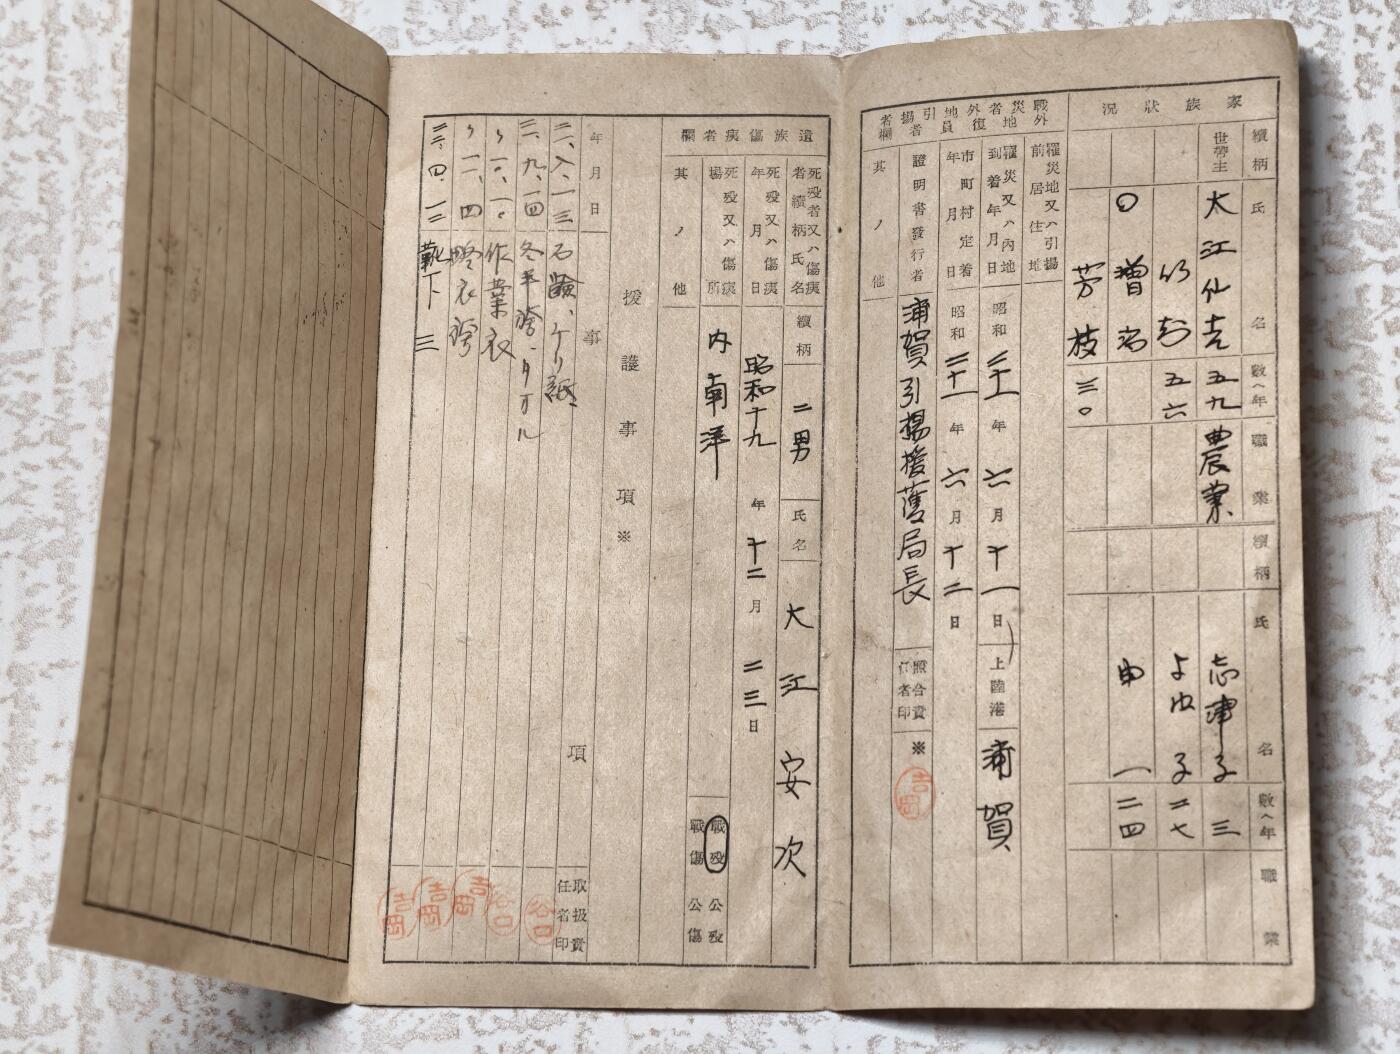 家族狀況
續柄 氏名 數ヘ年 職業 續柄 氏名 數ヘ年 職業
世帶主 大江仙吉 五九 農業 志津子 三
五六 よゆ子 二七
一 二四
芳枝 三〇
戰災者外地復員外地引揚者欄
罹災地又ハ引揚前居住地
罹災又ハ內地到着年月日 昭和二十一年六月十一日 上陸港 浦賀
市町村定着年月日 昭和二十一年六月十二日
證明書發行者 浦賀引揚援護局長 照合責任者印 ※ 吉岡
其ノ他
遺族傷痍者欄
死歿者又ハ傷痍者續柄氏名 續柄 二男 氏名 大江安次
死歿又ハ傷痍年月日 昭和十九年十二月二三日
死歿又ハ傷痍場所 內南洋 戰歿 公歿
戰傷 公傷
其ノ他
援護事項※
年月日 事項 取扱責任者印
二一、八、一三 石鹼、チリ紙 谷口
二一、九、一四 冬半袴、タオル 谷口
作業衣 吉岡
〃 一一、四 吉岡
二二、四、一二 靴下 三 吉岡